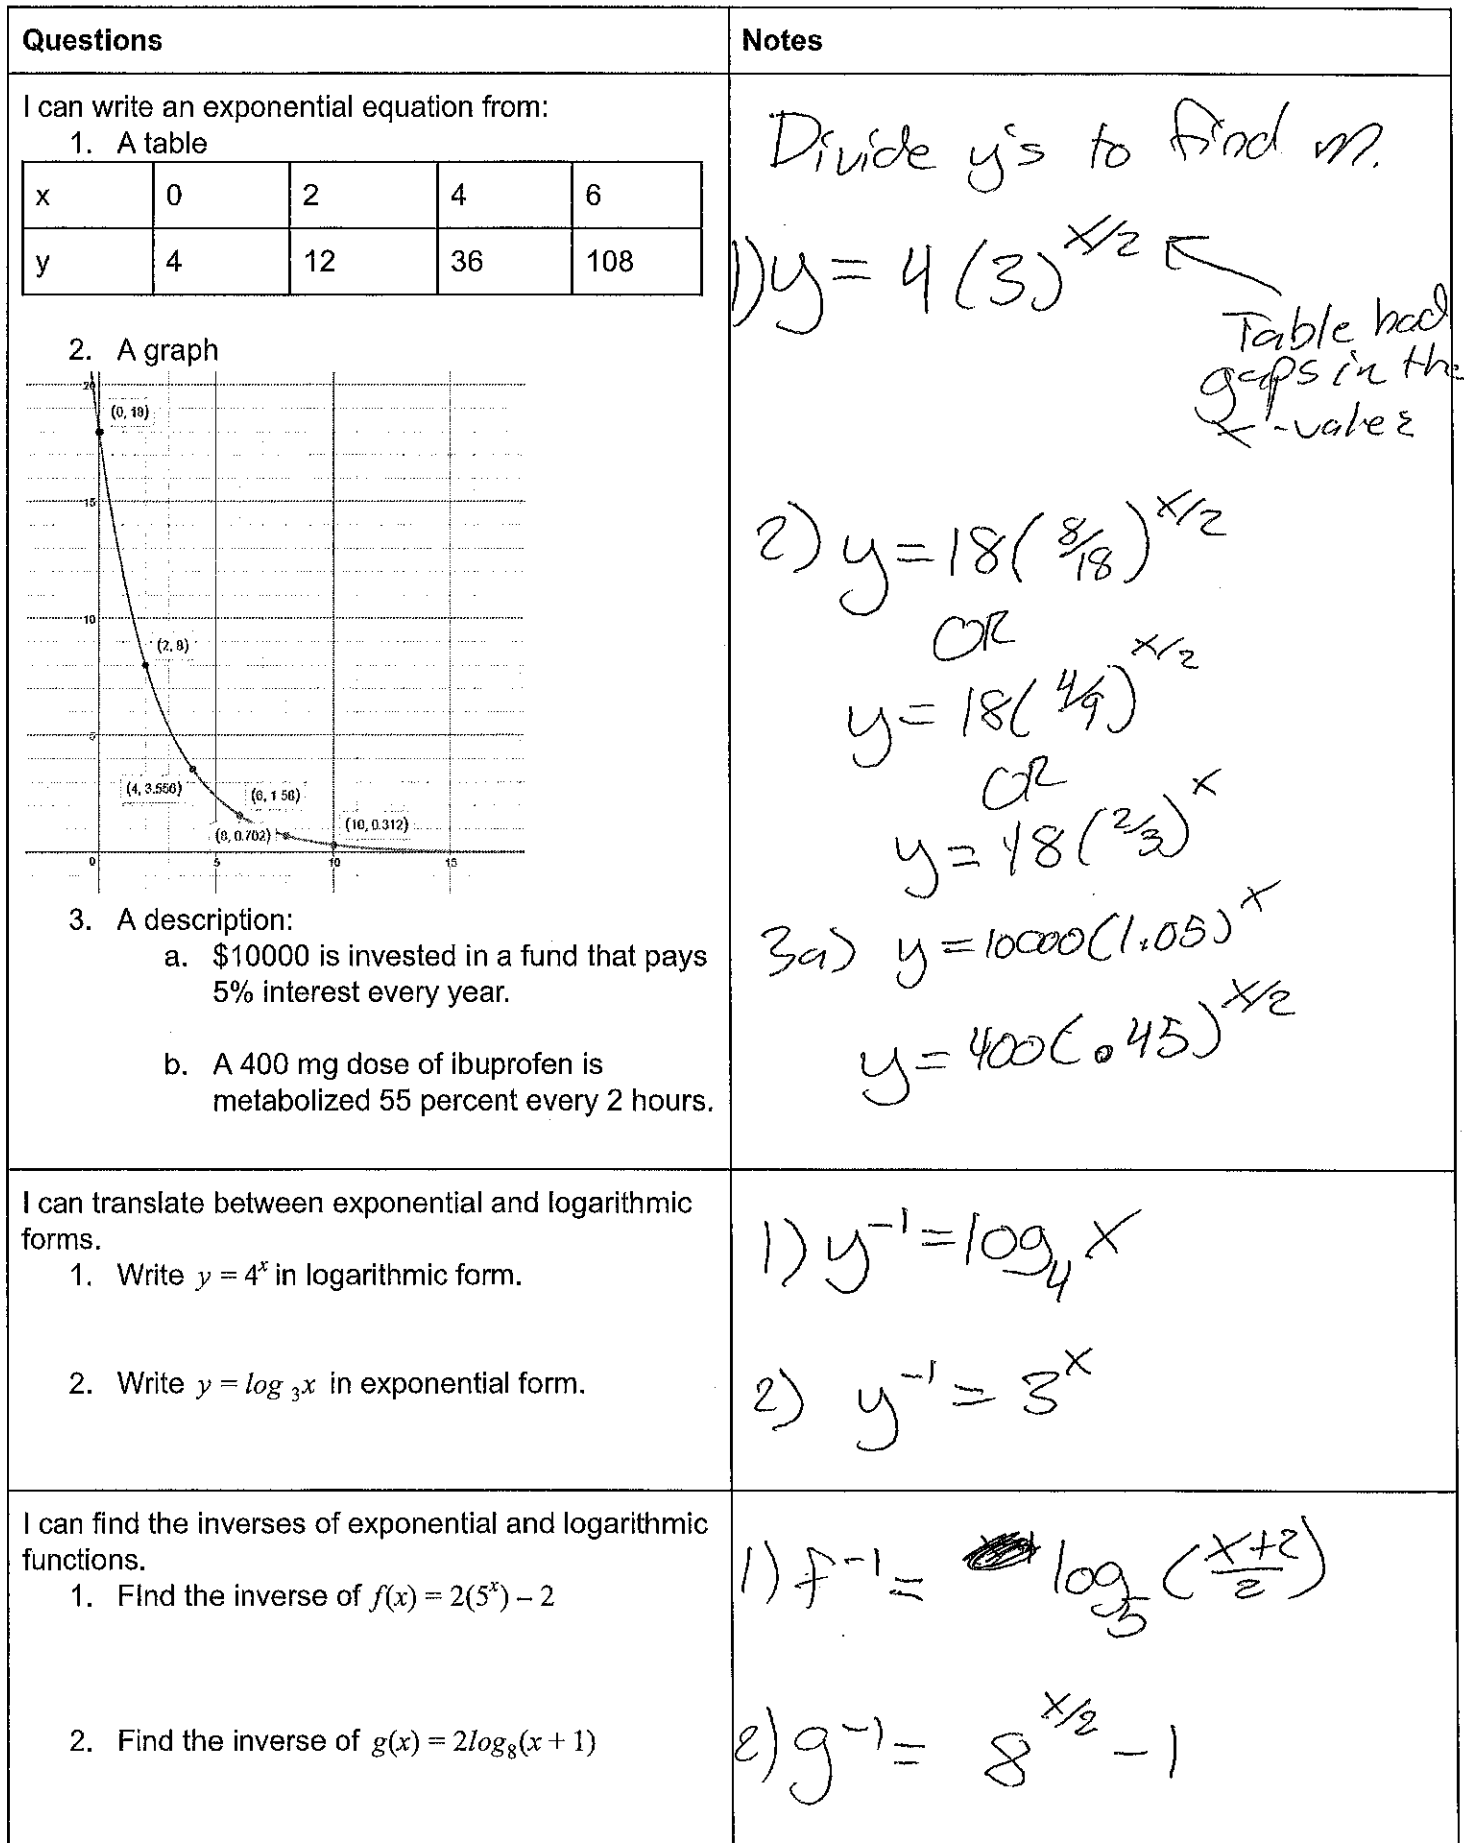 Questions
Notes
I can write an exponential equation from:
1. A table
x 0 2 4 6
y 4 12 36 108
2. A graph
20
(0, 18)
15
10
(2, 8)
5
(4, 3.556)
(6, 1.56)
(8, 0.702)
(10, 0.312)
0 5 10 15
3. A description:
a. $10000 is invested in a fund that pays
5% interest every year.
b. A 400 mg dose of ibuprofen is
metabolized 55 percent every 2 hours.
Divide y's to find m.
1) y = 4(3)^x/2
Table had
gaps in the
x-values
2) y = 18(8/18)^x/2
OR
y = 18(4/9)^x/2
OR
y = 18(2/3)^x
3a) y = 10000(1.05)^x
y = 400(.45)^x/2
I can translate between exponential and logarithmic
forms.
1. Write y = 4^x in logarithmic form.
2. Write y = log ₃x in exponential form.
1) y⁻¹ = log₄ x
2) y⁻¹ = 3^x
I can find the inverses of exponential and logarithmic
functions.
1. FInd the inverse of f(x) = 2(5^x) – 2
2. Find the inverse of g(x) = 2log₈(x + 1)
1) f⁻¹ = log₅ (x+2/2)
2) g⁻¹ = 8^x/2 – 1